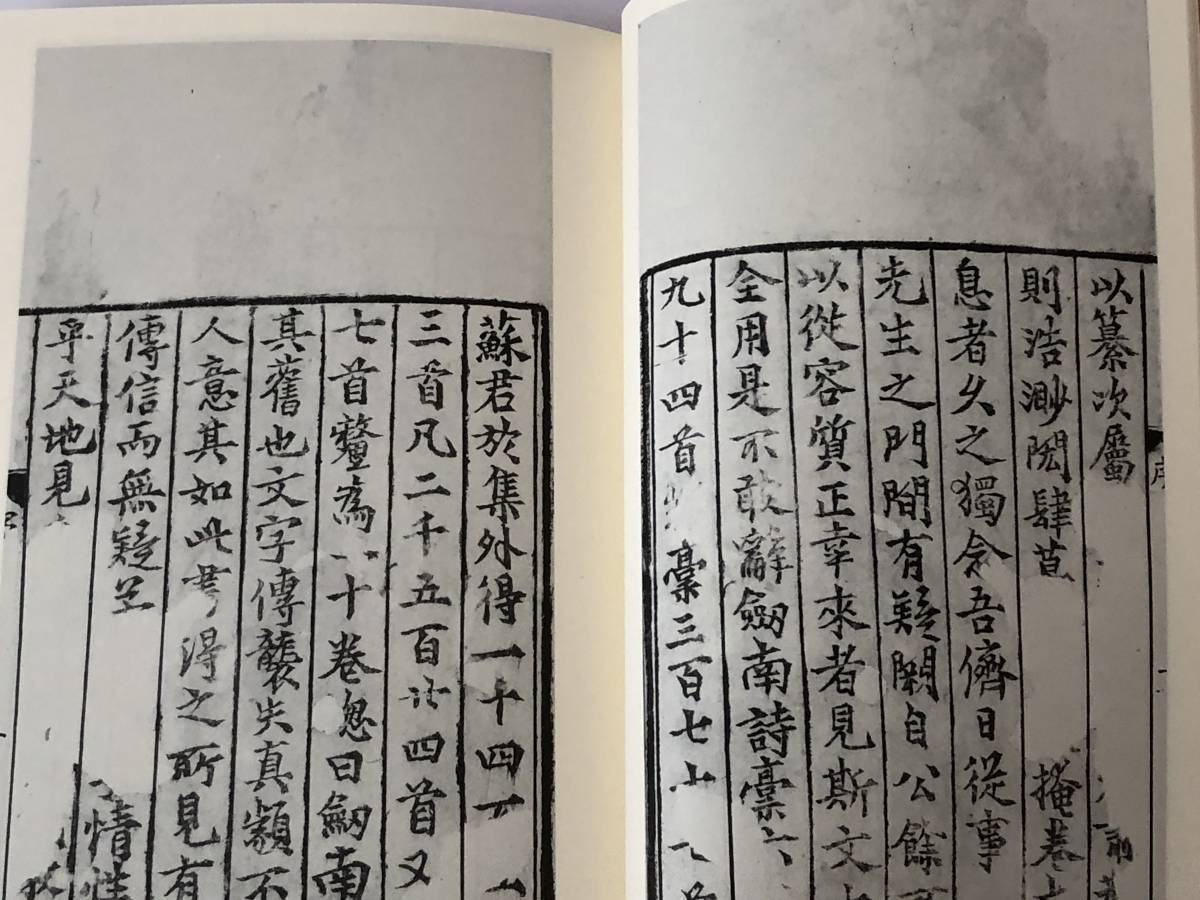 以纂次屬
則浩渺閎肆 掩卷
息者久之獨念吾儕日從事
先生之門間有疑闕自公餘
以從容質正幸來者見斯文
全用是不敢辭劒南詩稾
九十四首 稾三百七
蘇君於集外得一千四
三首凡二千五百廿四首又
七首釐為 十卷怱曰劒南
其舊也文字傳襲失真纇不
人意其如此書得之所見有
傳信而無疑 情性
乎天地見